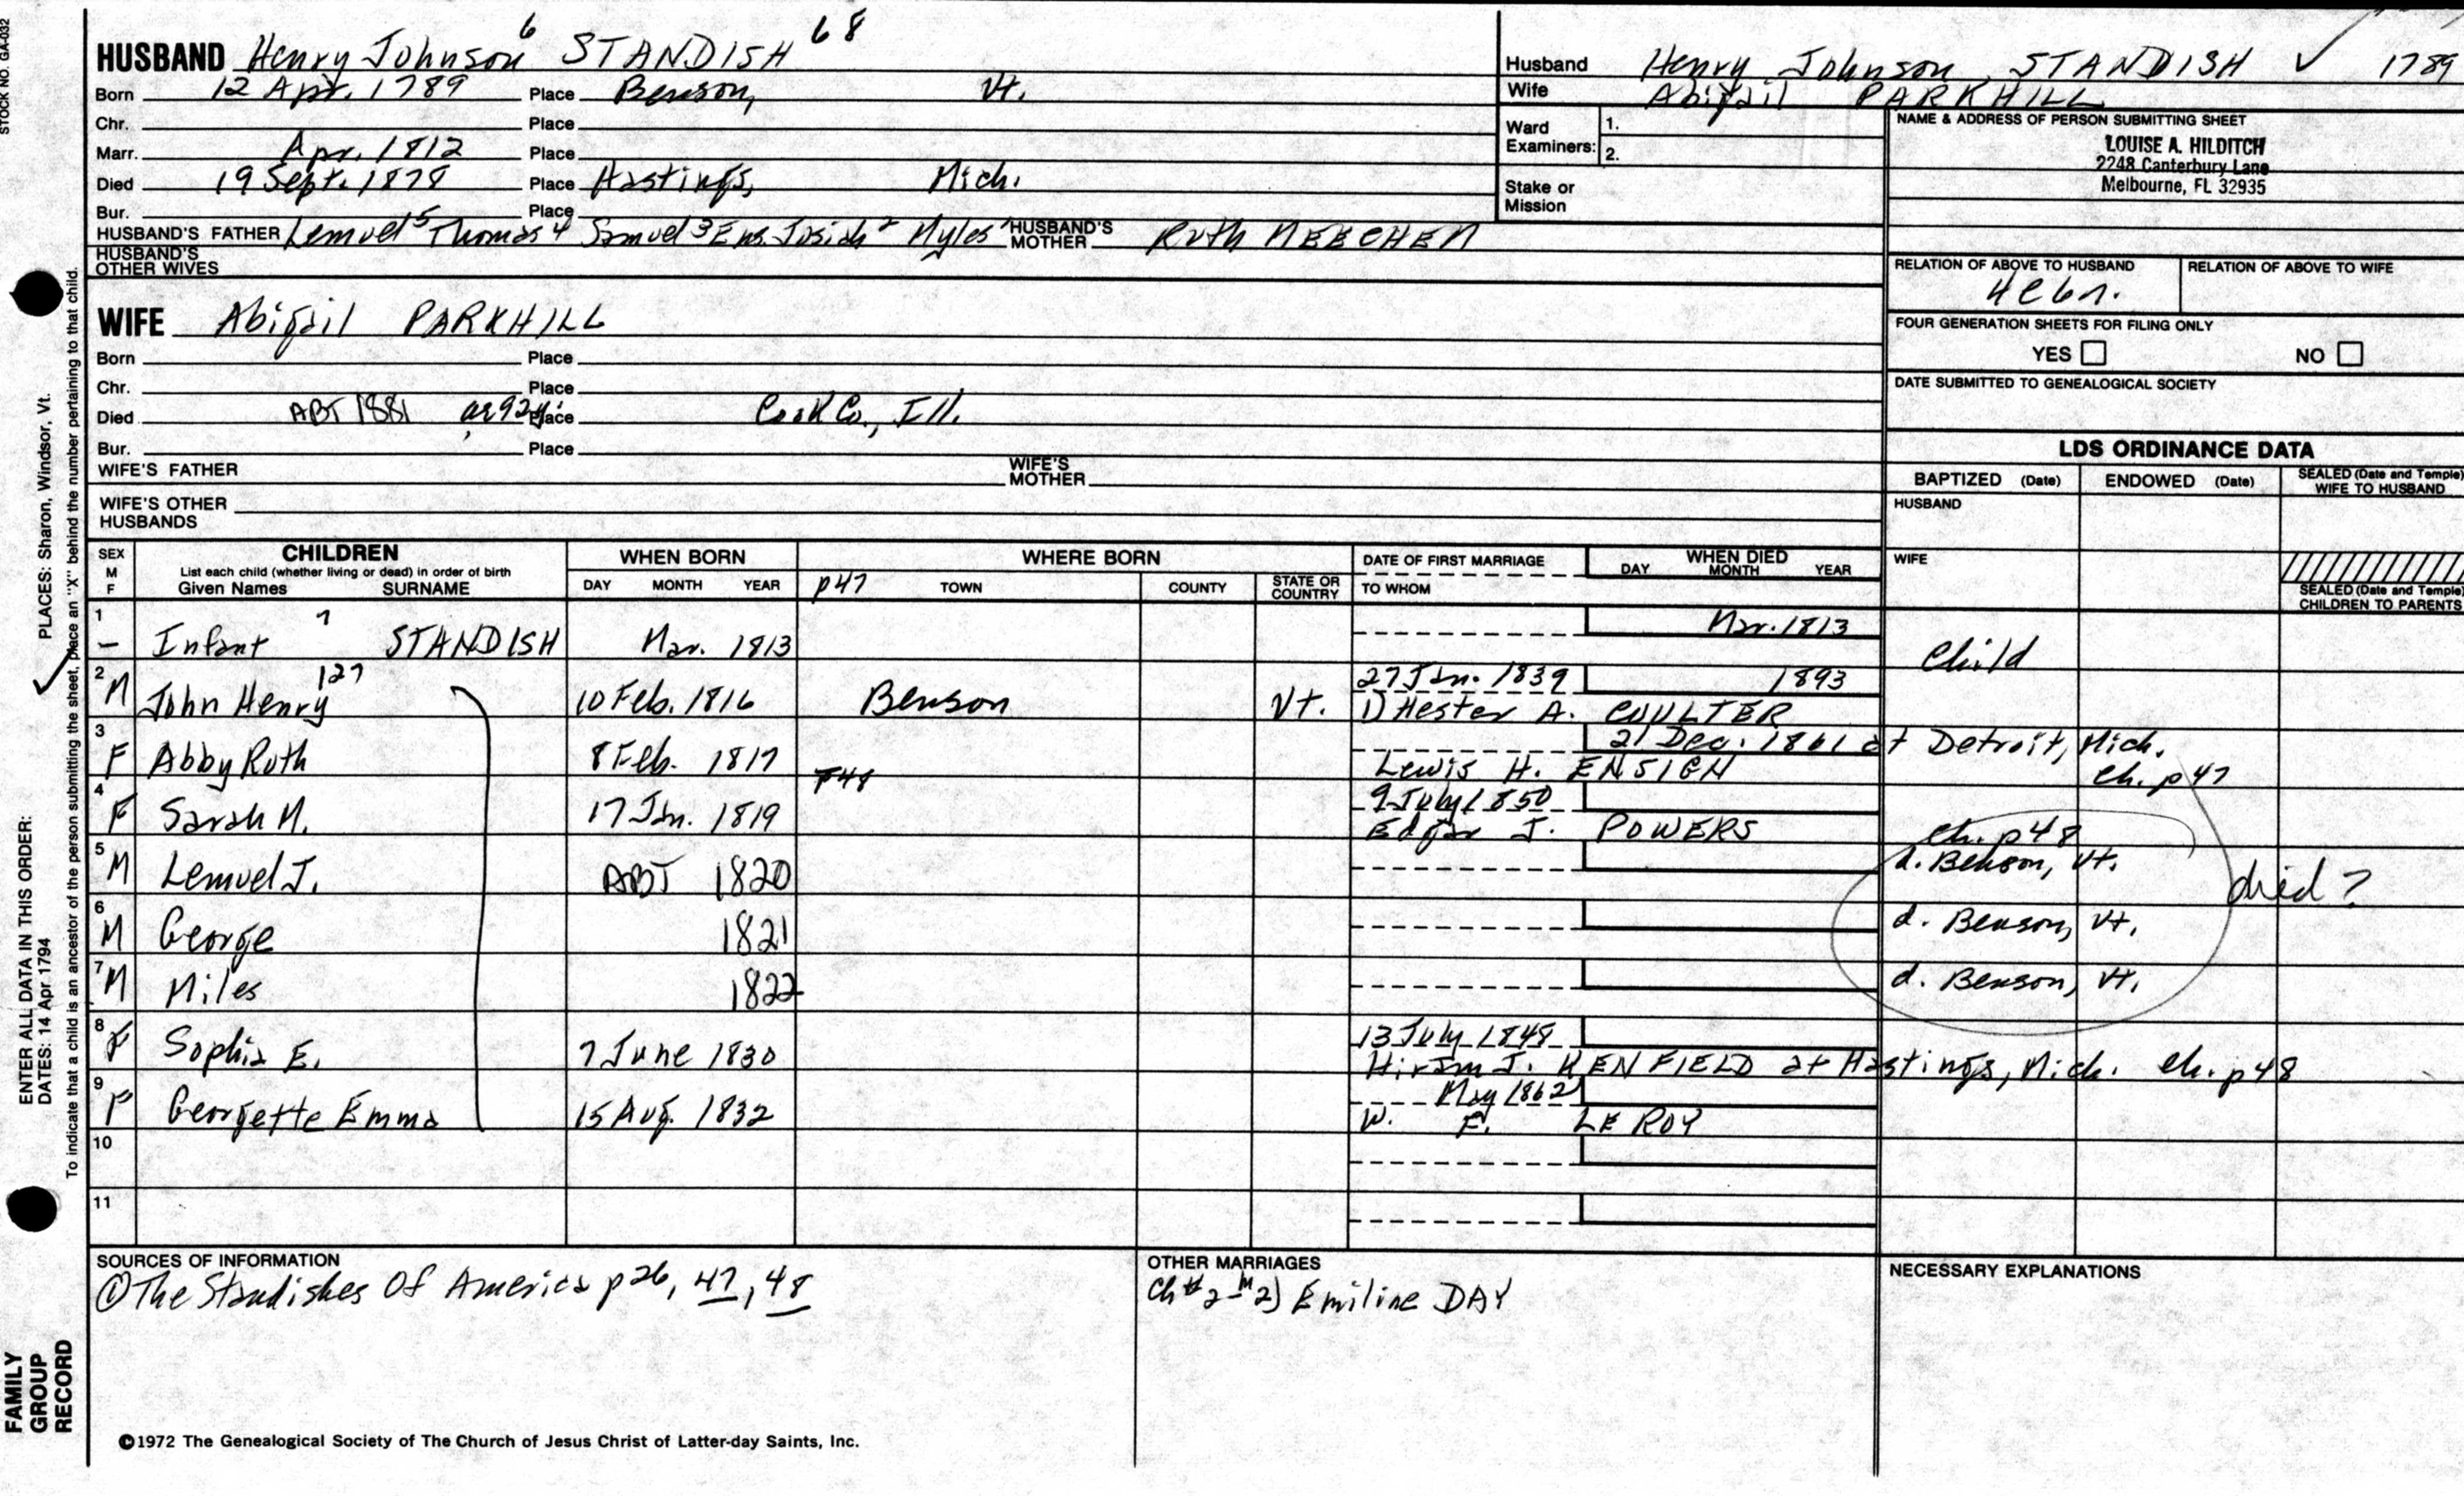 STOCK NO. GA-032
HUSBAND Henry Johnson 6 STANDISH 68
Born 12 Apr. 1789 Place Benson, Vt.
Chr. Place
Marr. Apr. 1812 Place
Died 19 Sept. 1878 Place Hastings, Mich.
Bur. Place
HUSBAND'S FATHER Lemuel 5 Thomas 4 Samuel 3 Ens. Josiah 2 Myles 1 HUSBAND'S MOTHER Ruth
HUSBAND'S OTHER WIVES
Husband Henry Johnson STANDISH ✓ 1789
Wife Abigail PARKHILL
Ward Examiners: 1.
2.
Stake or Mission
NAME & ADDRESS OF PERSON SUBMITTING SHEET
LOUISE A. HILDITCH
2248 Canterbury Lane
Melbourne, FL 32935
RELATION OF ABOVE TO HUSBAND RELATION OF ABOVE TO WIFE
FOUR GENERATION SHEETS FOR FILING ONLY
YES NO
DATE SUBMITTED TO GENEALOGICAL SOCIETY
WIFE Abigail PARKHILL
Born Place
Chr. Place
Died ABT 1881 Place Cook Co., Ill.
Bur. Place
WIFE'S FATHER WIFE'S MOTHER
WIFE'S OTHER HUSBANDS
LDS ORDINANCE DATA
BAPTIZED (Date) ENDOWED (Date) SEALED (Date and Temple) WIFE TO HUSBAND
HUSBAND
WIFE
SEALED (Date and Temple) CHILDREN TO PARENTS
SEX M F CHILDREN WHEN BORN WHERE BORN DATE OF FIRST MARRIAGE WHEN DIED
List each child (whether living or dead) in order of birth
Given Names SURNAME DAY MONTH YEAR p47 TOWN COUNTY STATE OR COUNTRY TO WHOM DAY MONTH YEAR
1 – Infant 7 STANDISH Mar. 1813 Mar. 1813 Child
2 M John Henry 127 10 Feb. 1816 Benson Vt. 27 Jan. 1839 1893
1) Hester A. COULTER
3 F Abby Ruth 8 Feb. 1817 21 Dec. 1861 at Detroit, Mich.
Lewis H. ENSIGN ch. p47
4 F Sarah M. p48 17 Jan. 1819 9 July 1850
Edgar J. POWERS ch. p48
5 M Lemuel J. ABT 1820 d. Benson, Vt. died?
6 M George 1821 d. Benson, Vt.
7 M Miles 1822 d. Benson, Vt.
8 F Sophia E. 7 June 1830 13 July 1848
Hiram J. KENFIELD at Hastings, Mich. ch. p48
9 F Georgette Emma 15 Aug. 1832 May 1862
W. F. LE ROY
10
11
SOURCES OF INFORMATION
① The Standishes Of America p26, 47, 48
OTHER MARRIAGES
Ch #2 - m 2) Emiline DAY
NECESSARY EXPLANATIONS
©1972 The Genealogical Society of The Church of Jesus Christ of Latter-day Saints, Inc.
FAMILY GROUP RECORD
ENTER ALL DATA IN THIS ORDER:
DATES: 14 Apr 1794
✓ PLACES: Sharon, Windsor, Vt.
To indicate that a child is an ancestor of the person submitting the sheet, place an "X" behind the number pertaining to that child.